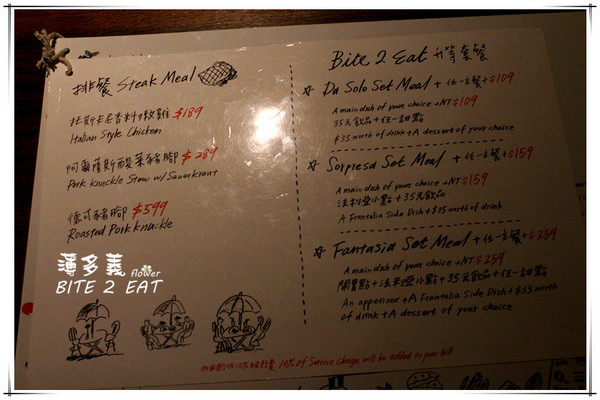 排餐 Steak Meal
托斯卡尼香料嫩雞 $189
Italian Style Chicken
阿爾薩斯酸菜豬腳 $289
Pork Knuckle Stew w/ Sauerkraut
德式豬腳 $599
Roasted Pork Knuckle
薄多義 flower
BITE 2 EAT
Bite 2 Eat 升等套餐
Da Solo Set Meal + 任一主餐+$109
A main dish of your choice +NT$109
35元飲品+任一甜點
$35 worth of drink + A dessert of your choice
Sorpresa Set Meal + 任一主餐+$159
A main dish of your choice +NT$159
法利亞小點+35元飲品
A Frantalia Side Dish + $35 worth of drink
Fantasia Set Meal + 任一主餐+$259
A main dish of your choice +NT$259
開胃點+法利亞小點+35元飲品+任一甜點
An appetizer + A Frantalia Side Dish + $35 worth
of drink + A dessert of your choice
10% of Service Charge will be added to your bill